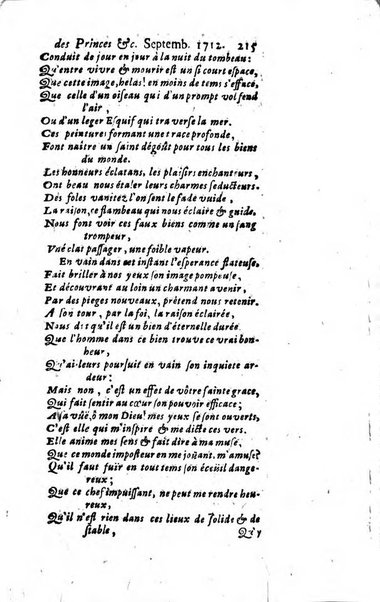 des Princes &c. Septemb. 1712. 215
Conduit de jour en jour à la nuit du tombeau:
Qu'entre vivre & mourir est un si court espace,
Que cette image, helas! en moins de tems s'efface,
Que celle d'un oiseau qui d'un prompt vol fend
l'air,
Ou d'un leger Esquif qui traverse la mer.
Ces peintures formant une trace profonde,
Font naître un saint dégôût pour tous les biens
du monde.
Les honneurs éclatans, les plaisirs enchanteurs,
Ont beau nous étaler leurs charmes seducteurs.
Dés foles vanitez l'on sent le fade vuide,
La raison, ce flambeau qui nous éclaire & guide,
Nous font voir ces faux biens comme un sang
trompeur,
Vn éclat passager, une foible vapeur.
En vain dans cet instant l'esperance flateuse,
Fait briller à nos yeux son image pompeuse,
Et découvrant au loin un charmant avenir,
Par des pieges nouveaux, prétend nous retenir.
A son tour, par la foi, la raison éclairée,
Nous dit qu'il est un bien d'éternelle durée.
Que l'homme dans ce bien trouve ce vrai bon-
heur,
Qu'ailleurs poursuit en vain son inquiete ar-
deur:
Mais non, c'est un effet de vôtre sainte grace,
Qui fait sentir au cœur son pouvoir efficace;
A sa vûë, ô mon Dieu! mes yeux se sont ouverts,
C'est elle qui m'inspire & me dicte ces vers.
Elle anime mes sens & fait dire à ma muse,
Que ce monde imposteur en me joüant, m'amuse?
Qu'il faut fuïr en tout tems son écüeil dange-
reux;
Que ce chef impuissant, ne peut me rendre heu-
reux,
Qu'il n'est rien dans ces lieux de solide & de
stable,
Qu'y